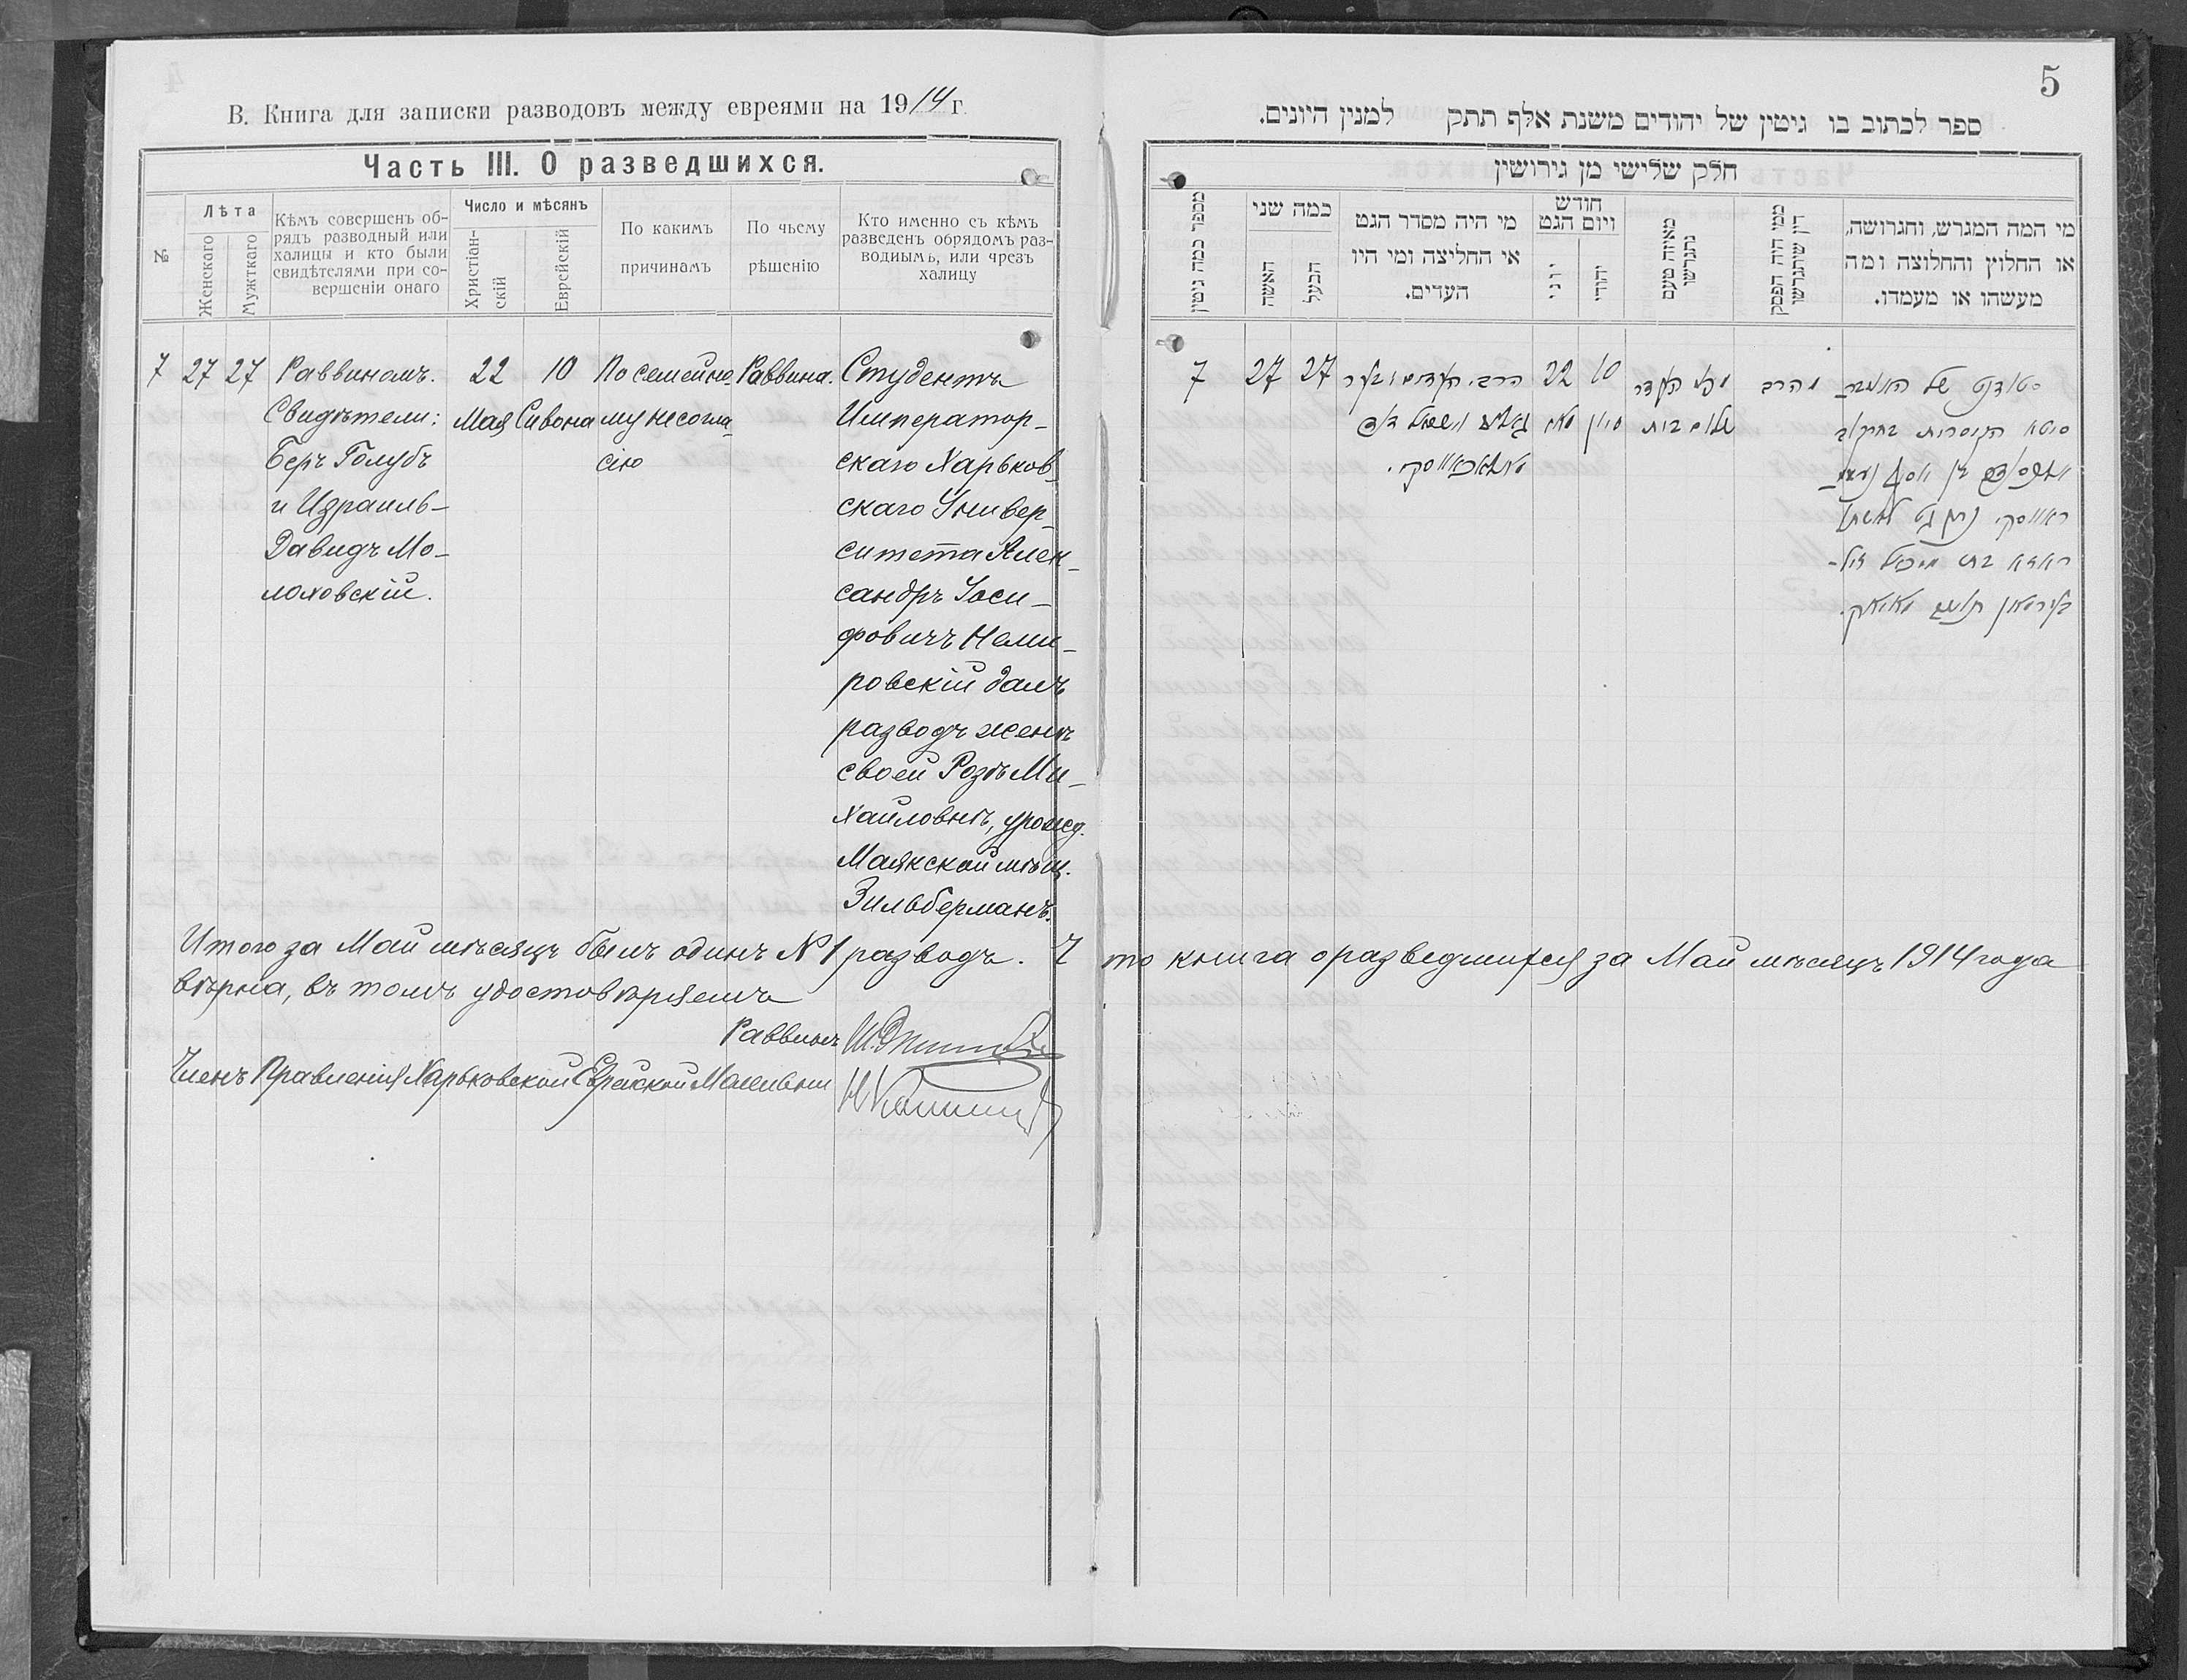 В. Книга для записки разводовъ между евреями на 1914 г
Часть III. О разведшихся.
№
Лѣта
Женскаго
Мужткаго
Кѣмъ совершенъ об-
рядъ разводный или
халицы и кто были
свидѣтелями при со-
вершеніи онаго
Число и мѣсянъ
Христіан-
скій
Еврейскій
По какимъ
причинамъ
По чьему
рѣшенію
Кто именно съ кѣмъ
разведенъ обрядомъ раз-
водиымь, или чрезъ
халицу
7 27 27 Раввиномъ. 22 10 По семейно Раввина. Студентъ
Свидѣтели: Мая Сивона му несогла_ Император_
Беръ Голубъ сію скаго Харьков_
и Израиль- скаго Универ_
Давидъ Мо- ситета Алек_
лоховскій. сандръ Іоси_
фовичъ Неми_
ровскій далъ
разводъ женѣ
своей Розѣ Ми_
хайловнѣ, урожд.
Маякской мѣщ.
Зильберманъ.
Итого за Май мѣсяцъ былъ одинъ № 1 разводъ. Что книга о разведшихся за Май мѣсяцъ 1914 года
вѣрна, въ томъ удостовѣряемъ
Раввинъ
Членъ Правленія Харьковской Еврейской Молельни
5
ספר לכתוב בו גיטין של יהודים משנת אלף תתק למנין היונים.
חלק שלישי מן גירושין
מספר כמה גיטין
כמה שני
האשה
הבעל
מי היה מסדר הגט
או החליצה ומי היו
העדים.
חודש
ויום הגט
יוני
יהודי
מאיזה טעם
נתגרשו
ממי היה הפסק
דין שיתגרשו
מי המה המגרש, והגרושה,
או החלוץ והחלוצה ומה
מעשהו או מעמדו.
7 27 27 הרב. העדים 22 10 מהרב סטודנט של
שלום בית סיון מאי